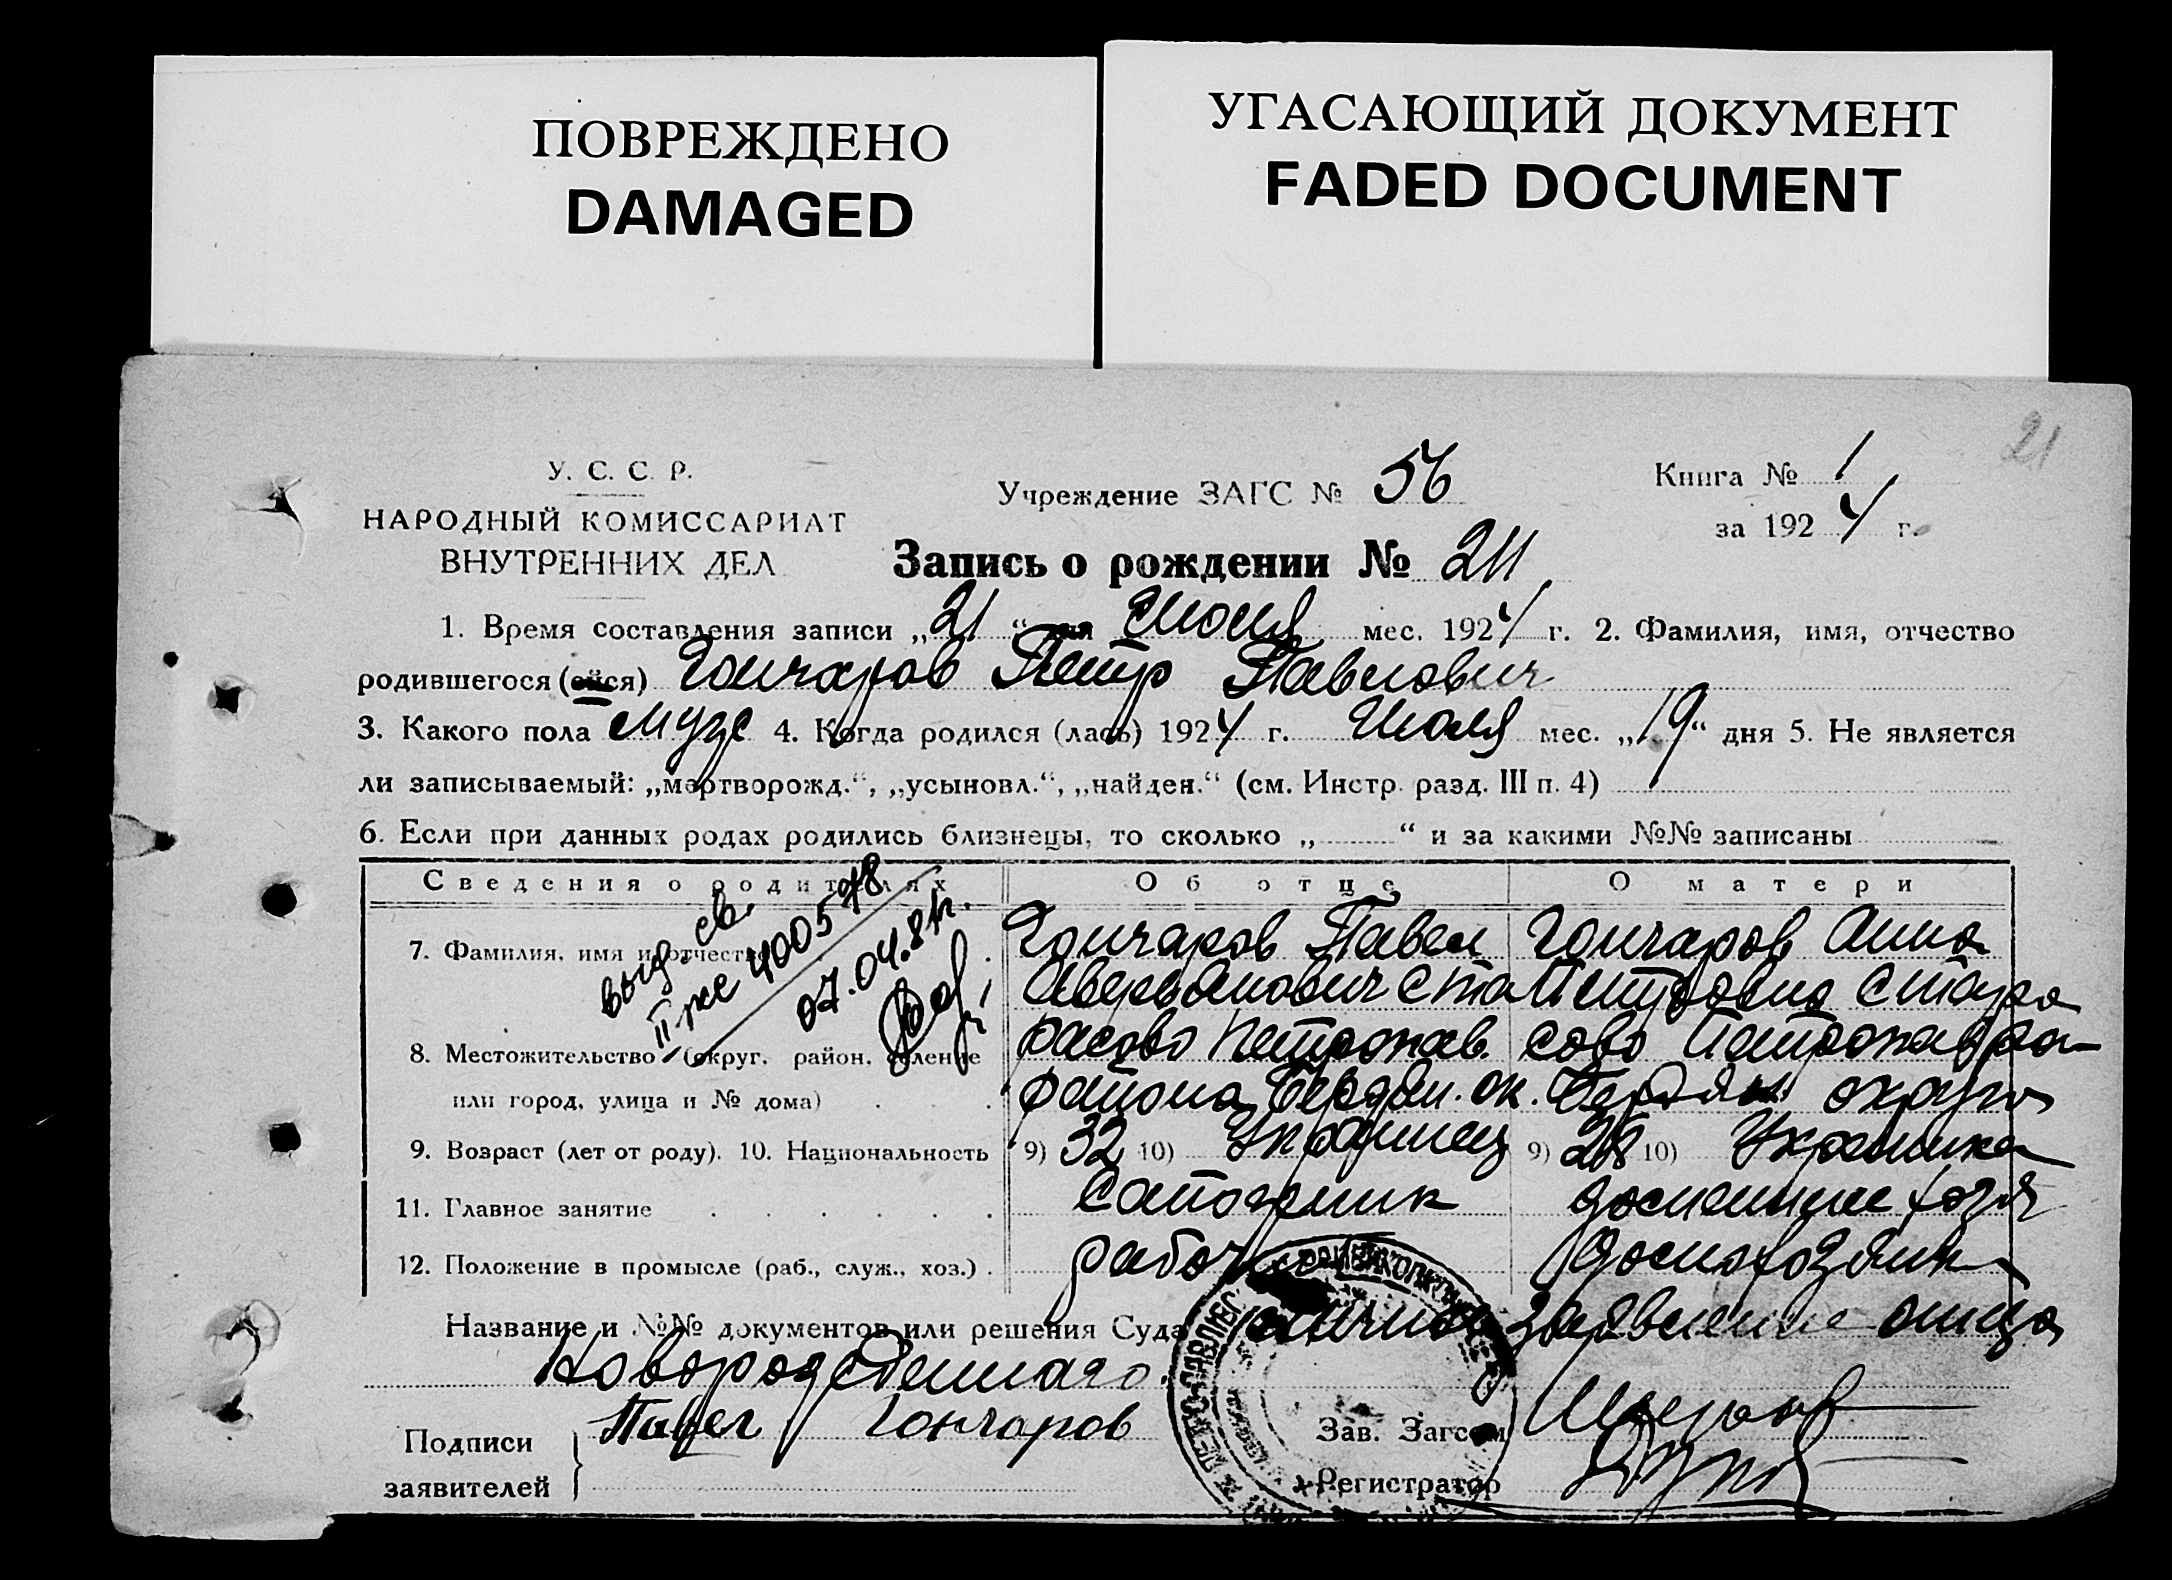 ПОВРЕЖДЕНО
DAMAGED
УГАСАЮЩИЙ ДОКУМЕНТ
FADED DOCUMENT
21
У. С. С. Р.
НАРОДНЫЙ КОМИССАРИАТ
ВНУТРЕННИХ ДЕЛ
Учреждение ЗАГС № 56
Книга № 1
за 1924 г.
Запись о рождении № 211
1. Время составления записи „21“ Июля мес. 1924 г. 2. Фамилия, имя, отчество
родившегося (ейся) Гончаров Петр Павлович
3. Какого пола муж 4. Когда родился (лась) 1924 г. Июля мес. „19“ дня 5. Не является
ли записываемый: „мертворожд.“, „усыновл.“, „найден.“ (см. Инстр. разд. III п. 4)
6. Если при данных родах родились близнецы, то сколько „ “ и за какими №№ записаны
Сведения о родителях Об отце О матери
выд. св.
07.04.81г.
7. Фамилия, имя и отчество Гончаров Павел Гончаров Анна
Аверьянович Ста Петровна Стара
8. Местожительство (округ, район, селение расово Петропав. сово Петропав ра-
или город, улица и № дома) района Бердян. ок. Бердян округа
9. Возраст (лет от роду). 10. Национальность 9) 32 10) Украинец 9) 28 10) Украинка
11. Главное занятие Сапожник домашнее хозя
12. Положение в промысле (раб., служ., хоз.) рабоч домохозяйка
Название и №№ документов или решения Суда личное заявление отца
Новорожденного
Подписи
заявителей
Павел Гончаров
Зав. Загсом
Регистратор